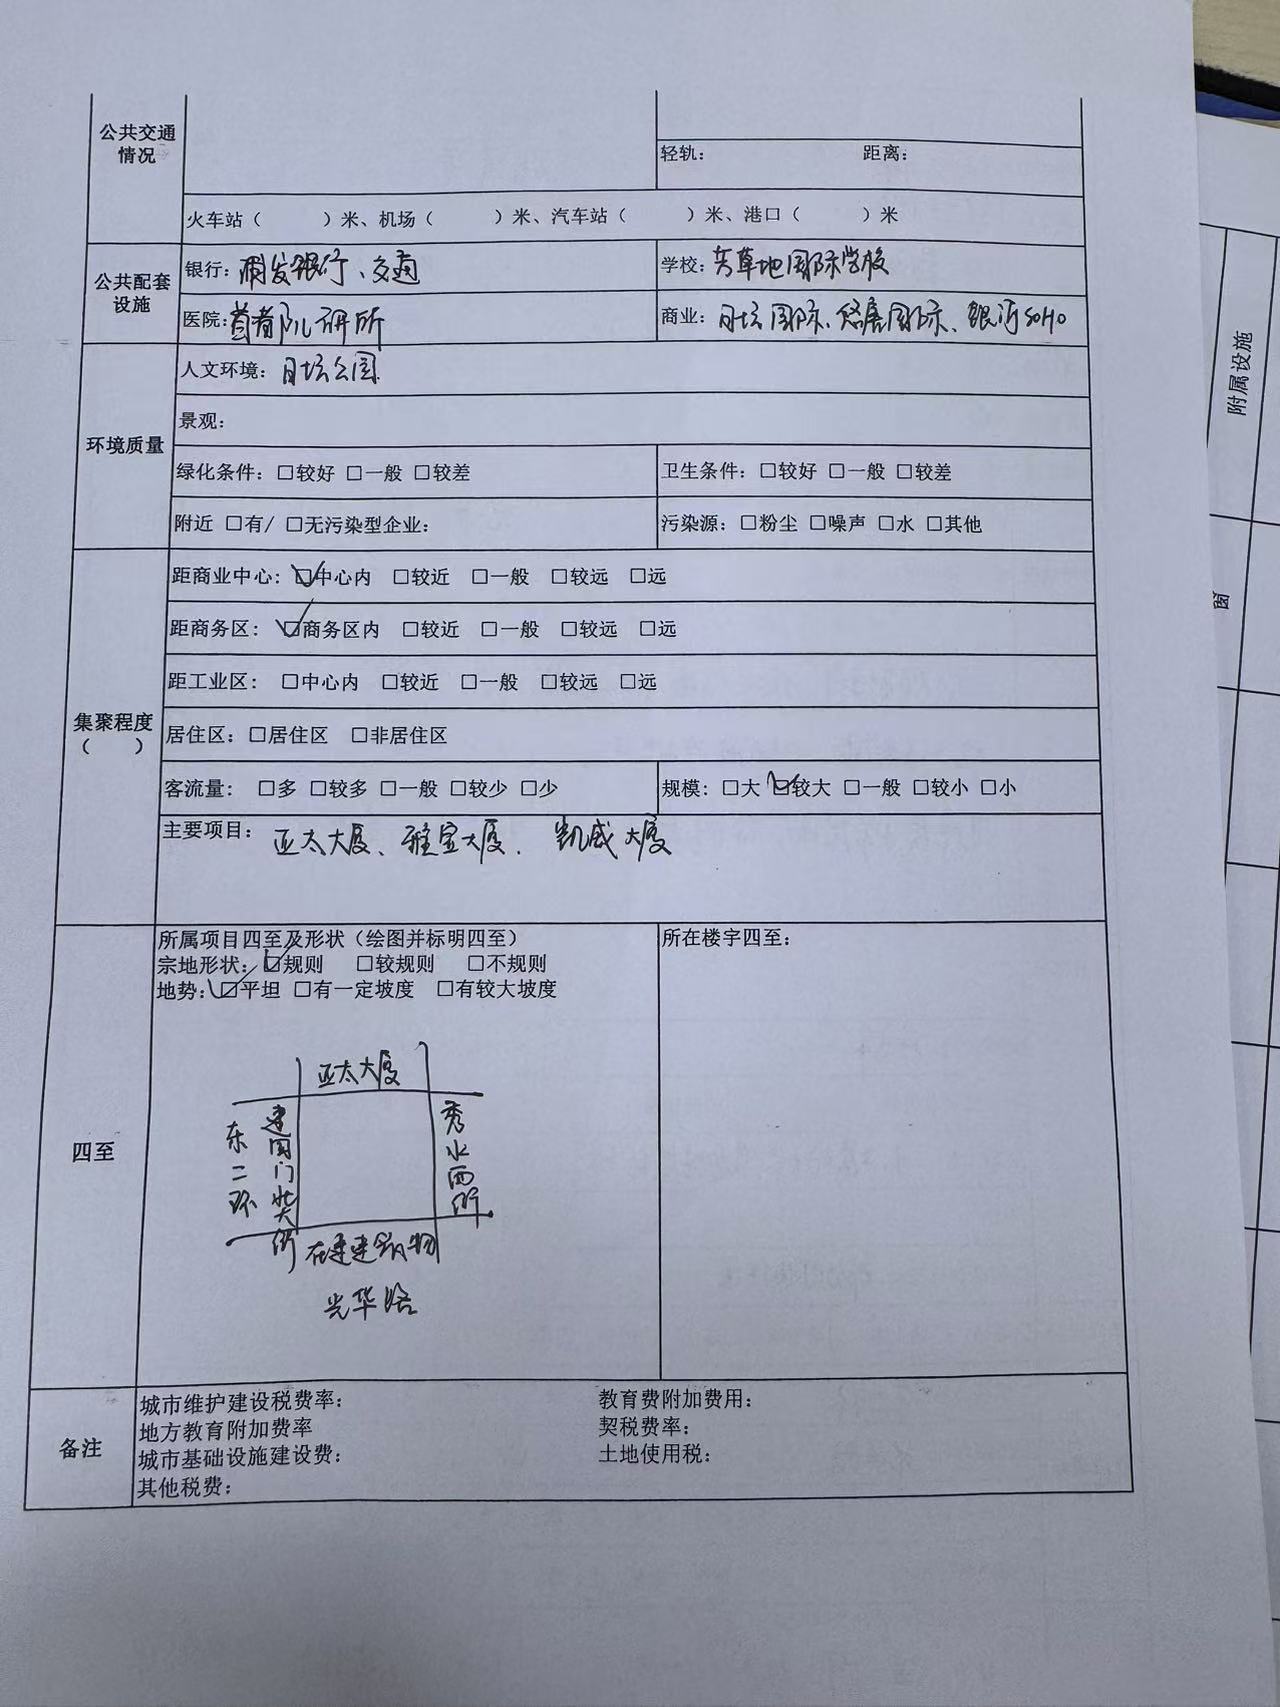 公共交通
情况
轻轨： 距离：
火车站（ ）米、机场（ ）米、汽车站（ ）米、港口（ ）米
公共配套
设施
银行：浦发银行、交通
学校：芳草地国际学校
医院：首都儿研所
商业：日坛国际、悠唐国际、银河SOHO
环境质量
人文环境：日坛公园
景观：
绿化条件：□较好 □一般 □较差
卫生条件：□较好 □一般 □较差
附近 □有/ □无污染型企业：
污染源：□粉尘 □噪声 □水 □其他
集聚程度
（ ）
距商业中心：☑中心内 □较近 □一般 □较远 □远
距商务区：☑商务区内 □较近 □一般 □较远 □远
距工业区：□中心内 □较近 □一般 □较远 □远
居住区：□居住区 □非居住区
客流量：□多 □较多 □一般 □较少 □少
规模：□大 ☑较大 □一般 □较小 □小
主要项目：亚太大厦、雅宝大厦、凯威大厦
四至
所属项目四至及形状（绘图并标明四至）
宗地形状：☑规则 □较规则 □不规则
地势：☑平坦 □有一定坡度 □有较大坡度
亚太大厦
东二环
建国门北大街
秀水西街
在建建筑物
光华路
所在楼宇四至：
备注
城市维护建设税费率： 教育费附加费用：
地方教育附加费率 契税费率：
城市基础设施建设费： 土地使用税：
其他税费：
附属设施